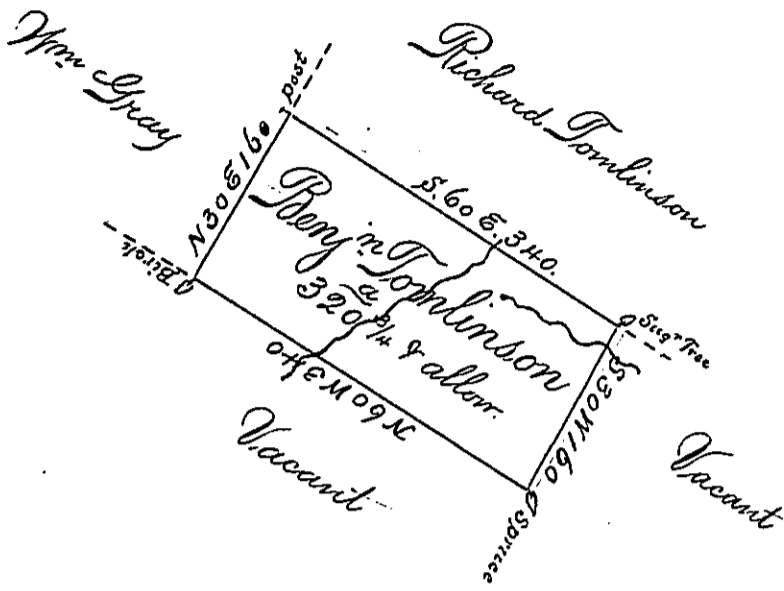 Wm Gray
Richard Tomlinson
post
N30E160
S.60E.340.
Benjn Tomlinson
a
320 3/4 & allow.
Birch
Sugr Tree
N60W340
S30W160
Vacant
Vacant
Spruce